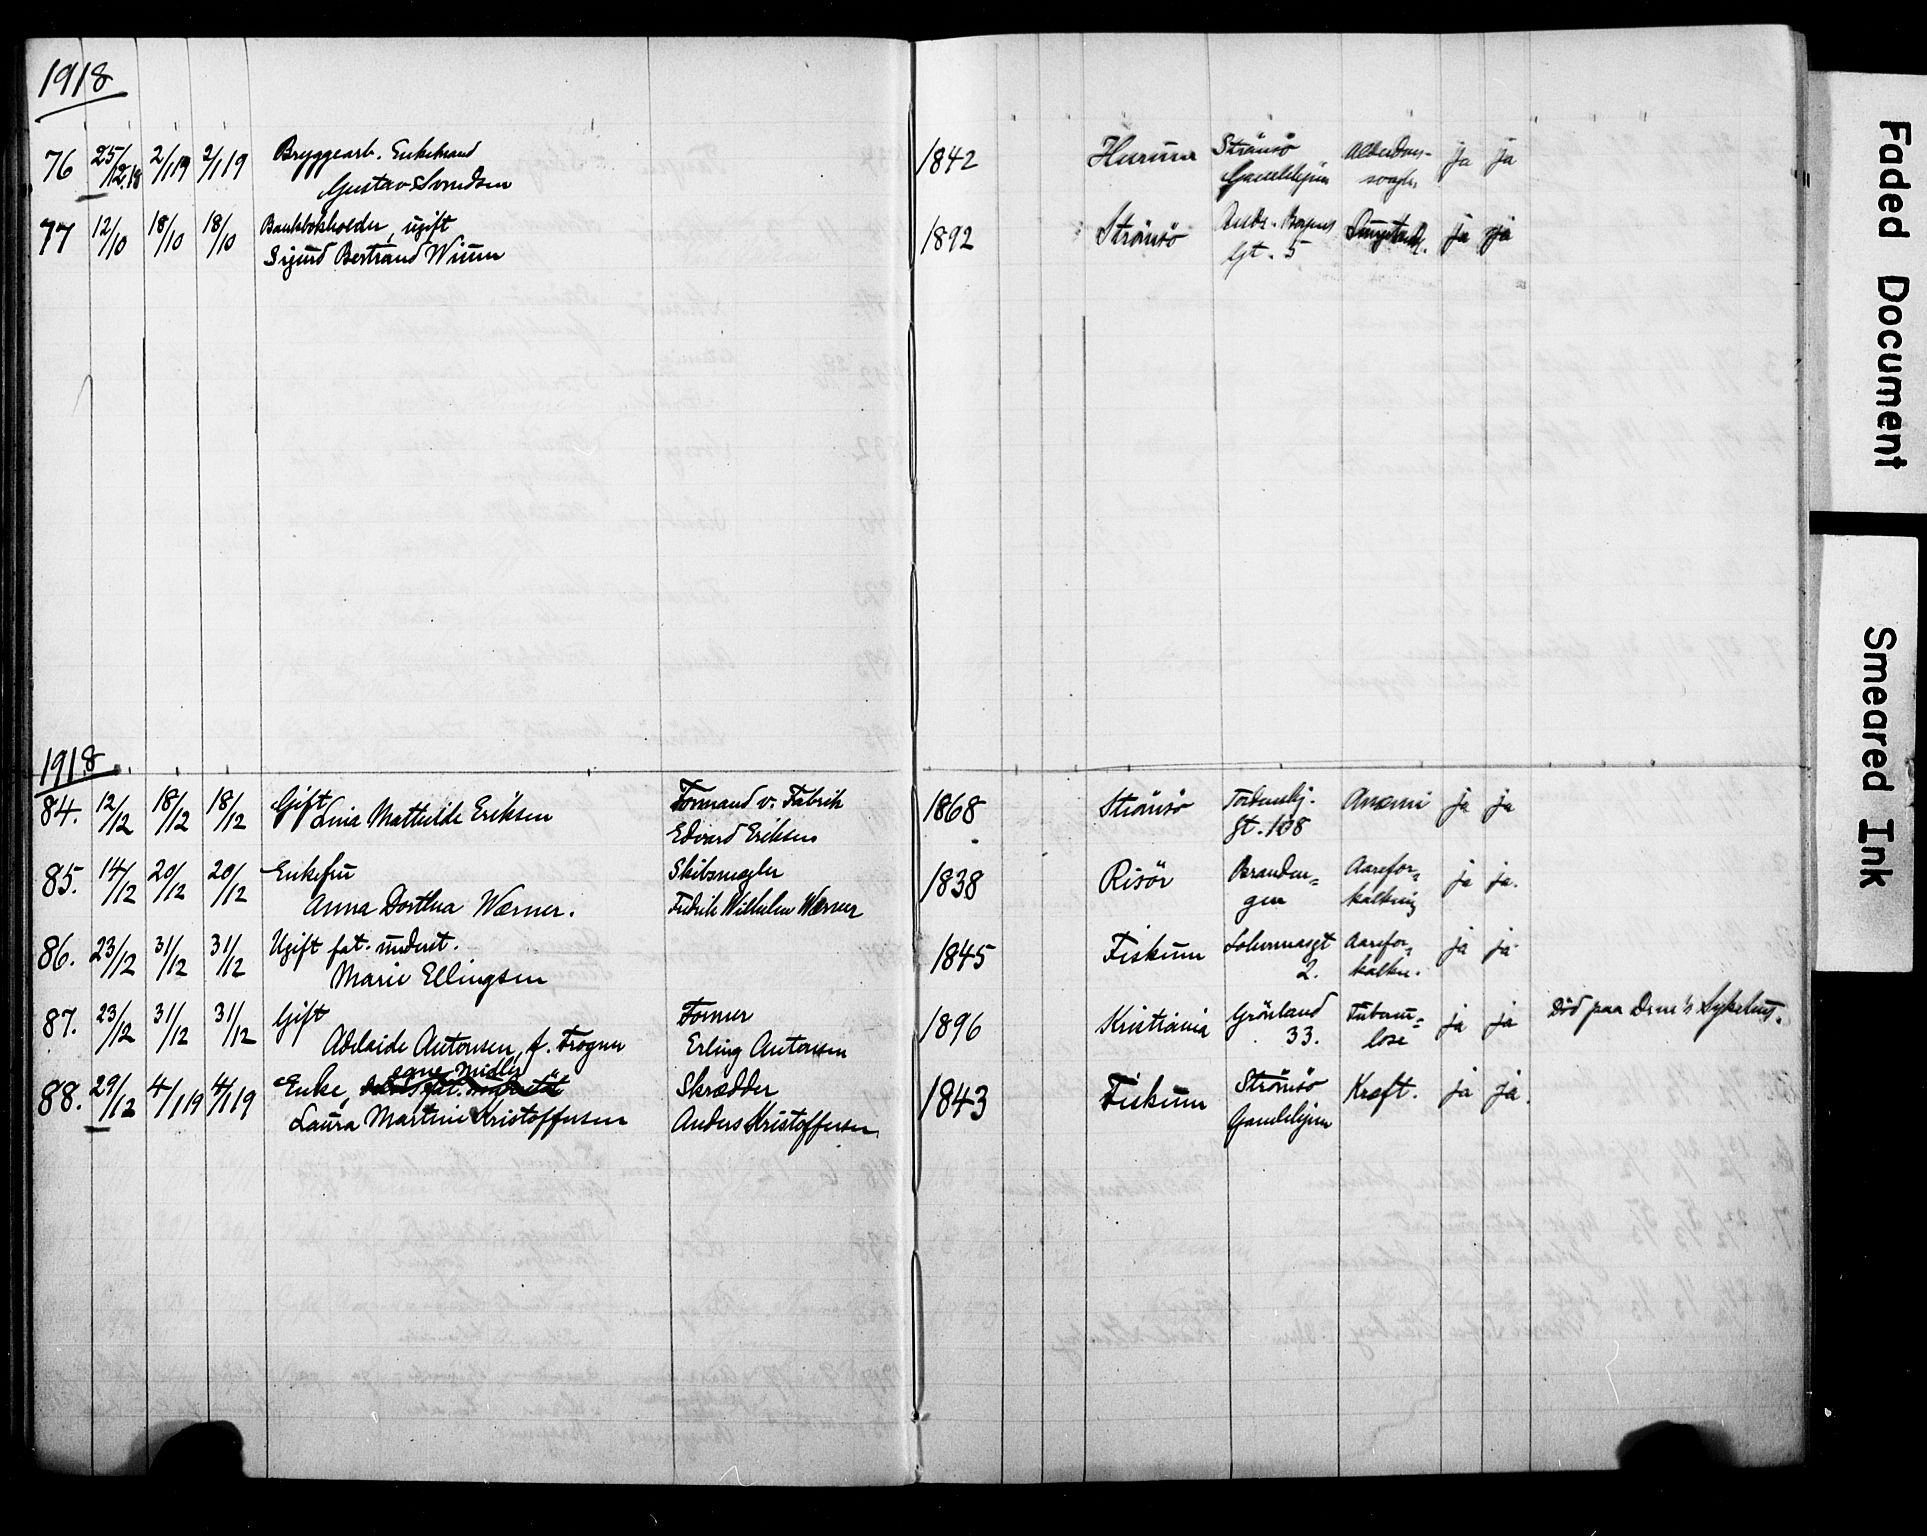 1918
76 25/12.18 2/1 19 2/1 19 Bryggearb. Enkemand 1842 Hurum Strömsö Alderdoms- ja ja
Gustav Svendsen Gamlehjem svagh.
77 12/10 18/10 18/10 Bankbokholder, ugift 1892 Strömsö gt. 5 ja ja
Sigurd Bertrand Wium
1918
84. 12/12 18/12 18/12 Gift Formand v. Fabrik 1868 Strömsö Tordenskj. Anæmi ja ja
Lina Mathilde Eriksen Edvard Eriksen gt. 108
85. 14/12 20/12 20/12 Enkefru Skibsmegler 1838 Risör Branden= Aarefor= ja ja.
Anna Dorthea Wærner. Fredrik Wilhelm Wærner gen kalkning
86. 23/12 31/12 31/12 Ugift fat. underst. 1845 Fiskum 2. Aarefor= ja ja
Marie Ellingsen kalkn.
87. 23/12 31/12 31/12 Gift Former 1896 Kristiania Grönland Tuberku= ja ja Död paa Dram's Sykehus.
Adelaide Antonsen f. Frogner Erling Antonsen 33. lose
egne midler
88. 29/12 4/1 19 4/1 19 Enke, Skrædder 1843 Fiskum Strömsö Kræft. ja ja.
Laura Martine Kristoffersen Anders Kristoffersen Gamlehjem
Faded Document
Smeared Ink